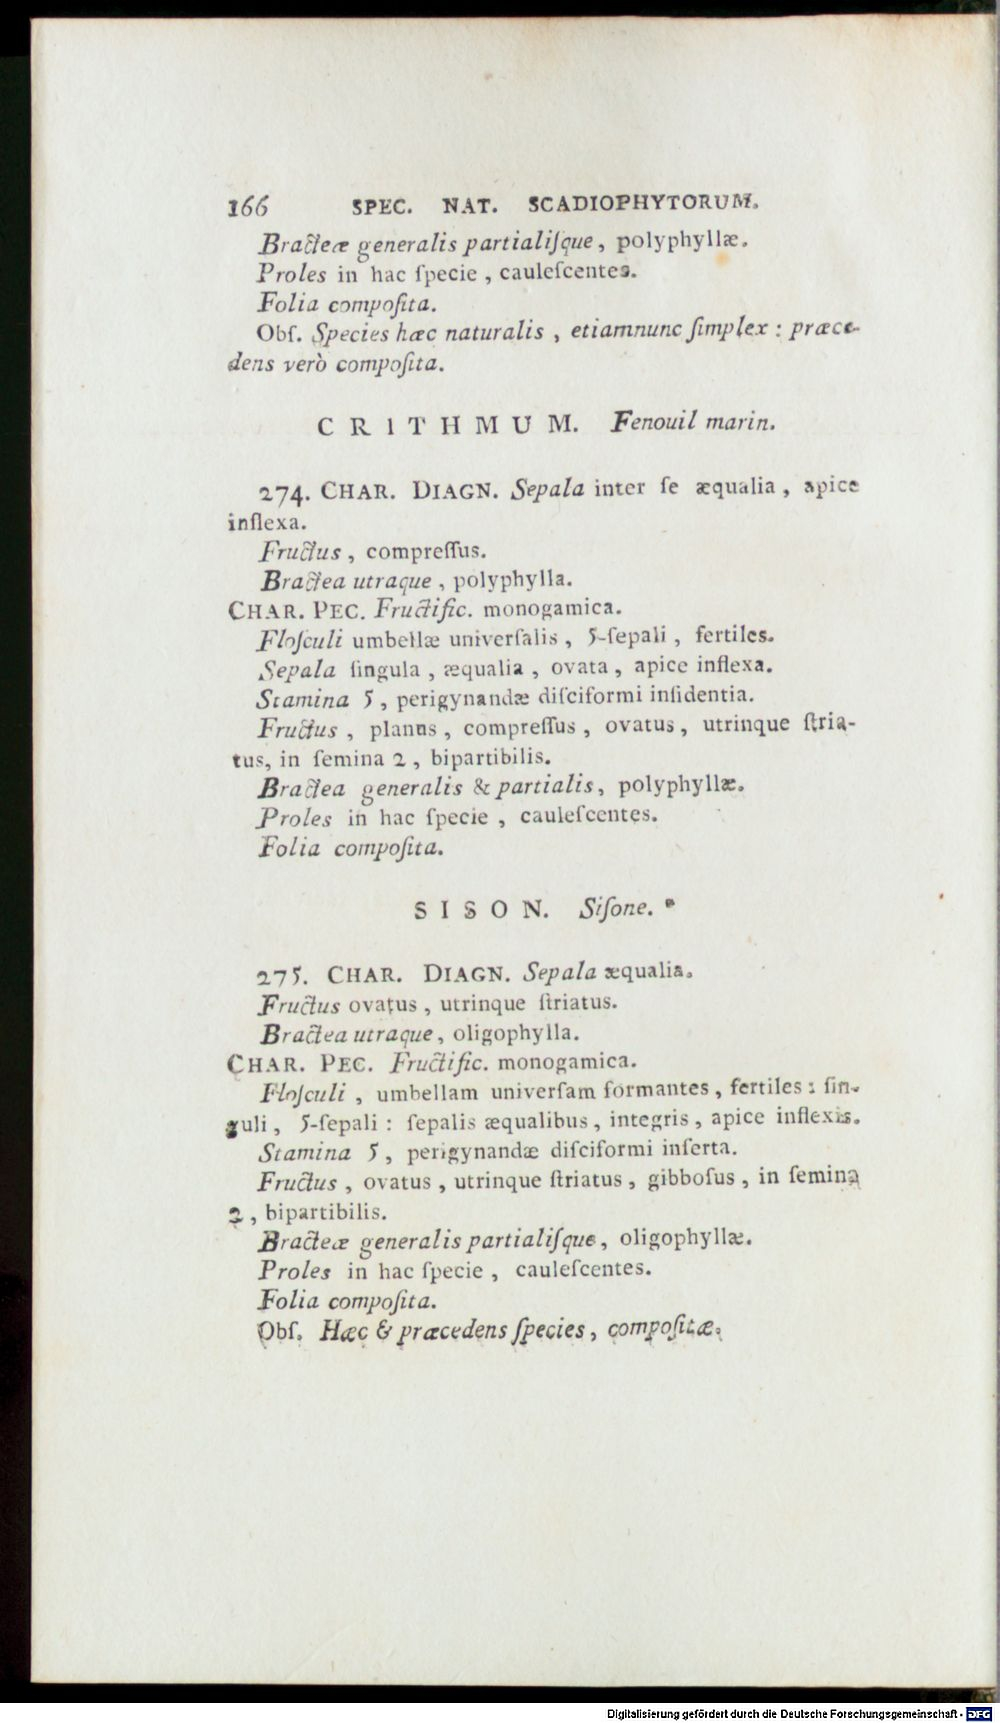 166 SPEC. NAT. SCADIOPHYTORUM.
Bracteæ generalis partialiſque, polyphyllæ.
Proles in hac ſpecie, cauleſcentes.
Folia compoſita.
Obſ. Species hæc naturalis, etiamnunc ſimplex : præce-
dens verò compoſita.
CRITHMUM. Fenouil marin.
274. CHAR. DIAGN. Sepala inter ſe æqualia, apice
inflexa.
Fructus, compreſſus.
Bractea utraque, polyphylla.
CHAR. PEC. Fructific. monogamica.
Floſculi umbellæ univerſalis, 5-ſepali, fertiles.
Sepala ſingula, æqualia, ovata, apice inflexa.
Stamina 5, perigynandæ diſciformi inſidentia.
Fructus, planus, compreſſus, ovatus, utrinque ſtria-
tus, in ſemina 2, bipartibilis.
Bractea generalis & partialis, polyphyllæ.
Proles in hac ſpecie, cauleſcentes.
Folia compoſita.
SISON. Siſone. *
275. CHAR. DIAGN. Sepala æqualia.
Fructus ovatus, utrinque ſtriatus.
Bractea utraque, oligophylla.
CHAR. PEC. Fructific. monogamica.
Floſculi, umbellam univerſam formantes, fertiles : ſin-
guli, 5-ſepali : ſepalis æqualibus, integris, apice inflexis.
Stamina 5, perigynandæ diſciformi inſerta.
Fructus, ovatus, utrinque ſtriatus, gibboſus, in ſemina
2, bipartibilis.
Bracteæ generalis partialiſque, oligophyllæ.
Proles in hac ſpecie, cauleſcentes.
Folia compoſita.
Obſ. Hæc & præcedens ſpecies, compoſitæ.
Digitalisierung gefördert durch die Deutsche Forschungsgemeinschaft - DFG